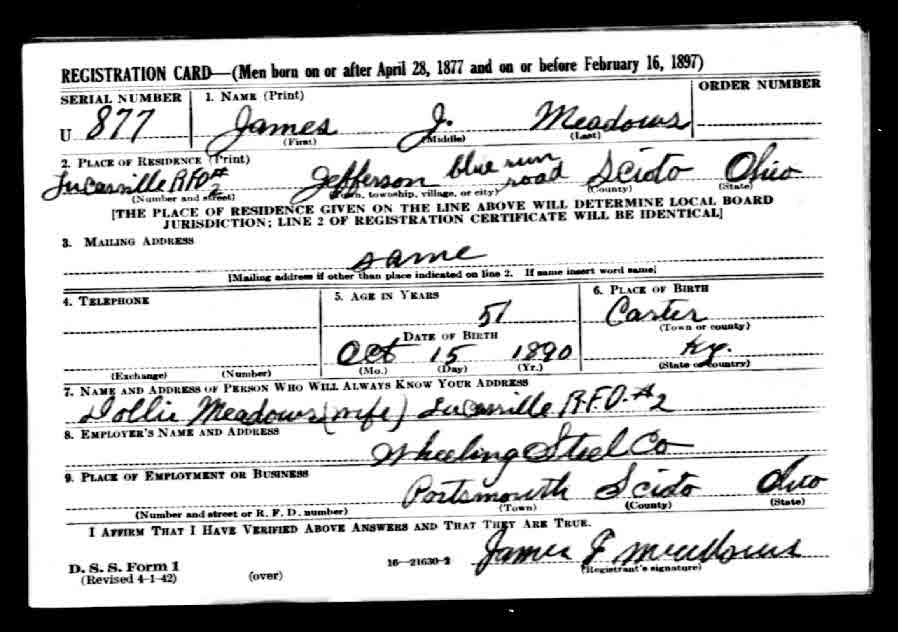 REGISTRATION CARD—(Men born on or after April 28, 1877 and on or before February 16, 1897)
SERIAL NUMBER 1. NAME (Print) ORDER NUMBER
U 877 James J. Meadows
(First) (Middle) (Last)
2. PLACE OF RESIDENCE (Print)
Lucasville R.F.D.# 2 Jefferson blue run road Scioto Ohio
(Number and street) (Town, township, village, or city) (County) (State)
[THE PLACE OF RESIDENCE GIVEN ON THE LINE ABOVE WILL DETERMINE LOCAL BOARD
JURISDICTION; LINE 2 OF REGISTRATION CERTIFICATE WILL BE IDENTICAL]
3. MAILING ADDRESS
same
[Mailing address if other than place indicated on line 2. If same insert word same]
4. TELEPHONE 5. AGE IN YEARS 6. PLACE OF BIRTH
51 Carter
(Town or county)
DATE OF BIRTH
Oct 15 1890 Ky.
(Exchange) (Number) (Mo.) (Day) (Yr.) (State or country)
7. NAME AND ADDRESS OF PERSON WHO WILL ALWAYS KNOW YOUR ADDRESS
Dollie Meadows (wife) Lucasville R.F.D.#2
8. EMPLOYER'S NAME AND ADDRESS
Wheeling Steel Co
9. PLACE OF EMPLOYMENT OR BUSINESS
Portsmouth Scioto Ohio
(Number and street or R. F. D. number) (Town) (County) (State)
I AFFIRM THAT I HAVE VERIFIED ABOVE ANSWERS AND THAT THEY ARE TRUE.
James J Meadows
D. S. S. Form 1 16—21630-2 (Registrant's signature)
(Revised 4-1-42) (over)